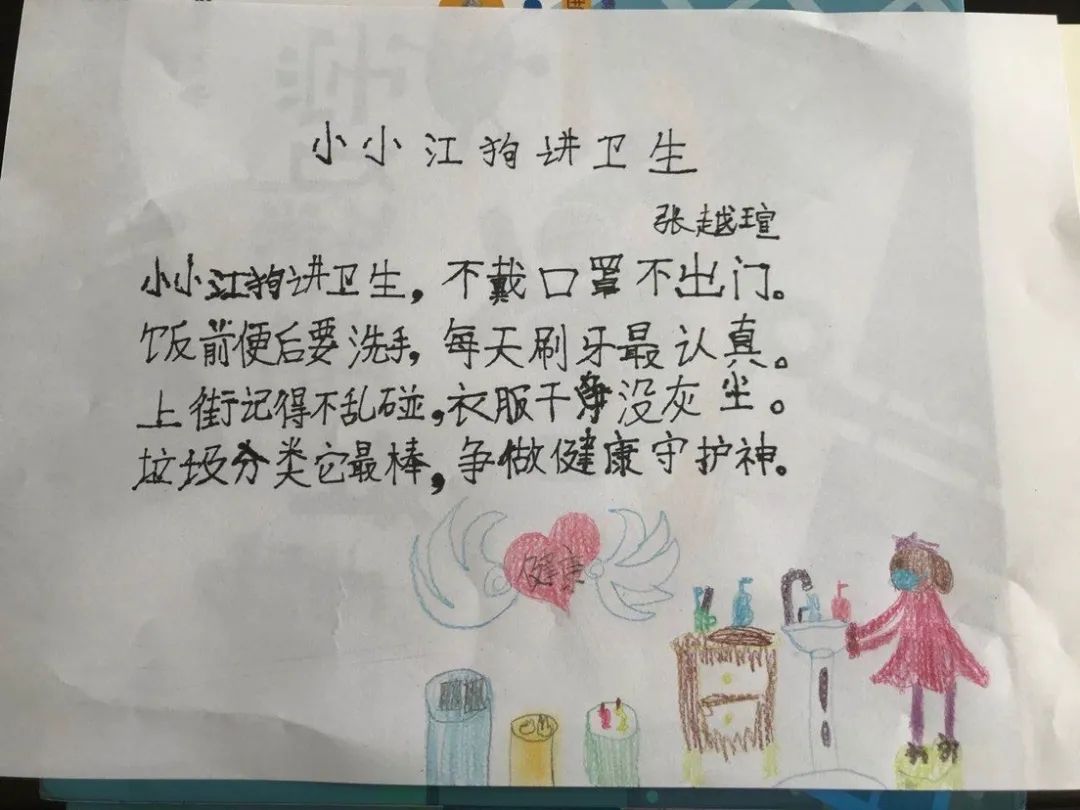 小小江狗讲卫生
张越瑄
小小江狗讲卫生，不戴口罩不出门。
饭前便后要洗手，每天刷牙最认真。
上街记得不乱碰，衣服干净没灰尘。
垃圾分类它最棒，争做健康守护神。
健康